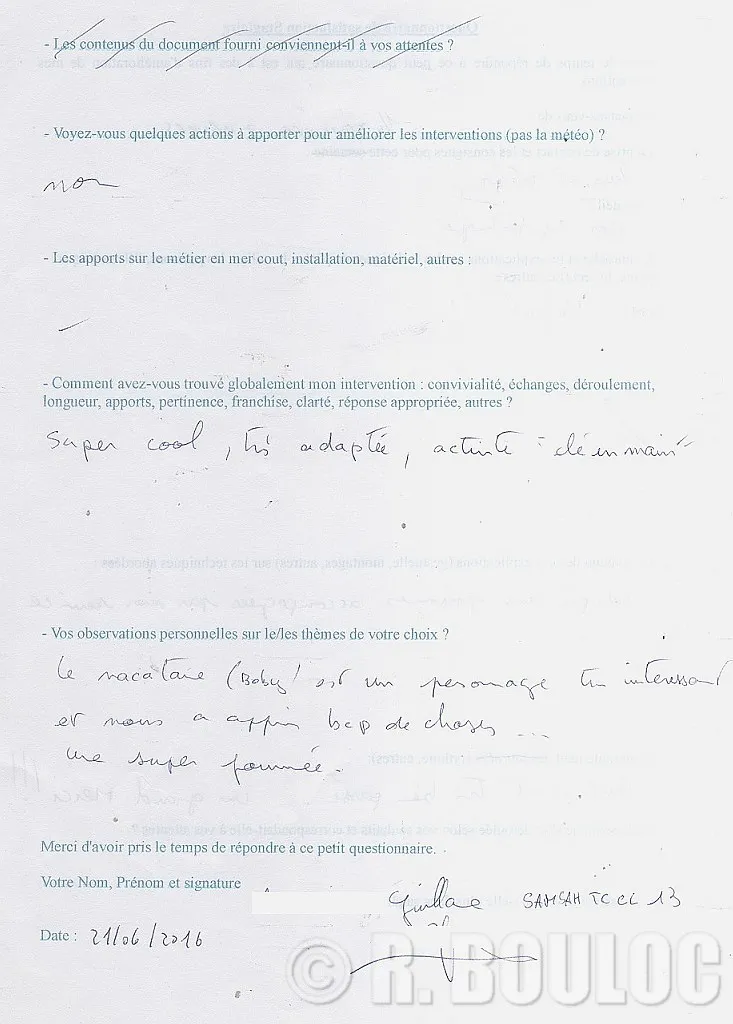 - Les contenus du document fourni conviennent-il à vos attentes ?
- Voyez-vous quelques actions à apporter pour améliorer les interventions (pas la météo) ?
non
- Les apports sur le métier en mer cout, installation, matériel, autres :
- Comment avez-vous trouvé globalement mon intervention : convivialité, échanges, déroulement,
longueur, apports, pertinence, franchise, clarté, réponse appropriée, autres ?
Super cool, très adaptée, activité "clé en main"
- Vos observations personnelles sur le/les thèmes de votre choix ?
Le vacataire (Boby) est un personnage très intéressant
et nous a appris bcp de choses ...
une super journée.
Merci d'avoir pris le temps de répondre à ce petit questionnaire.
Votre Nom, Prénom et signature
SAMSAH TC CL 13
Date : 21/06/2016
© R. BOULOC